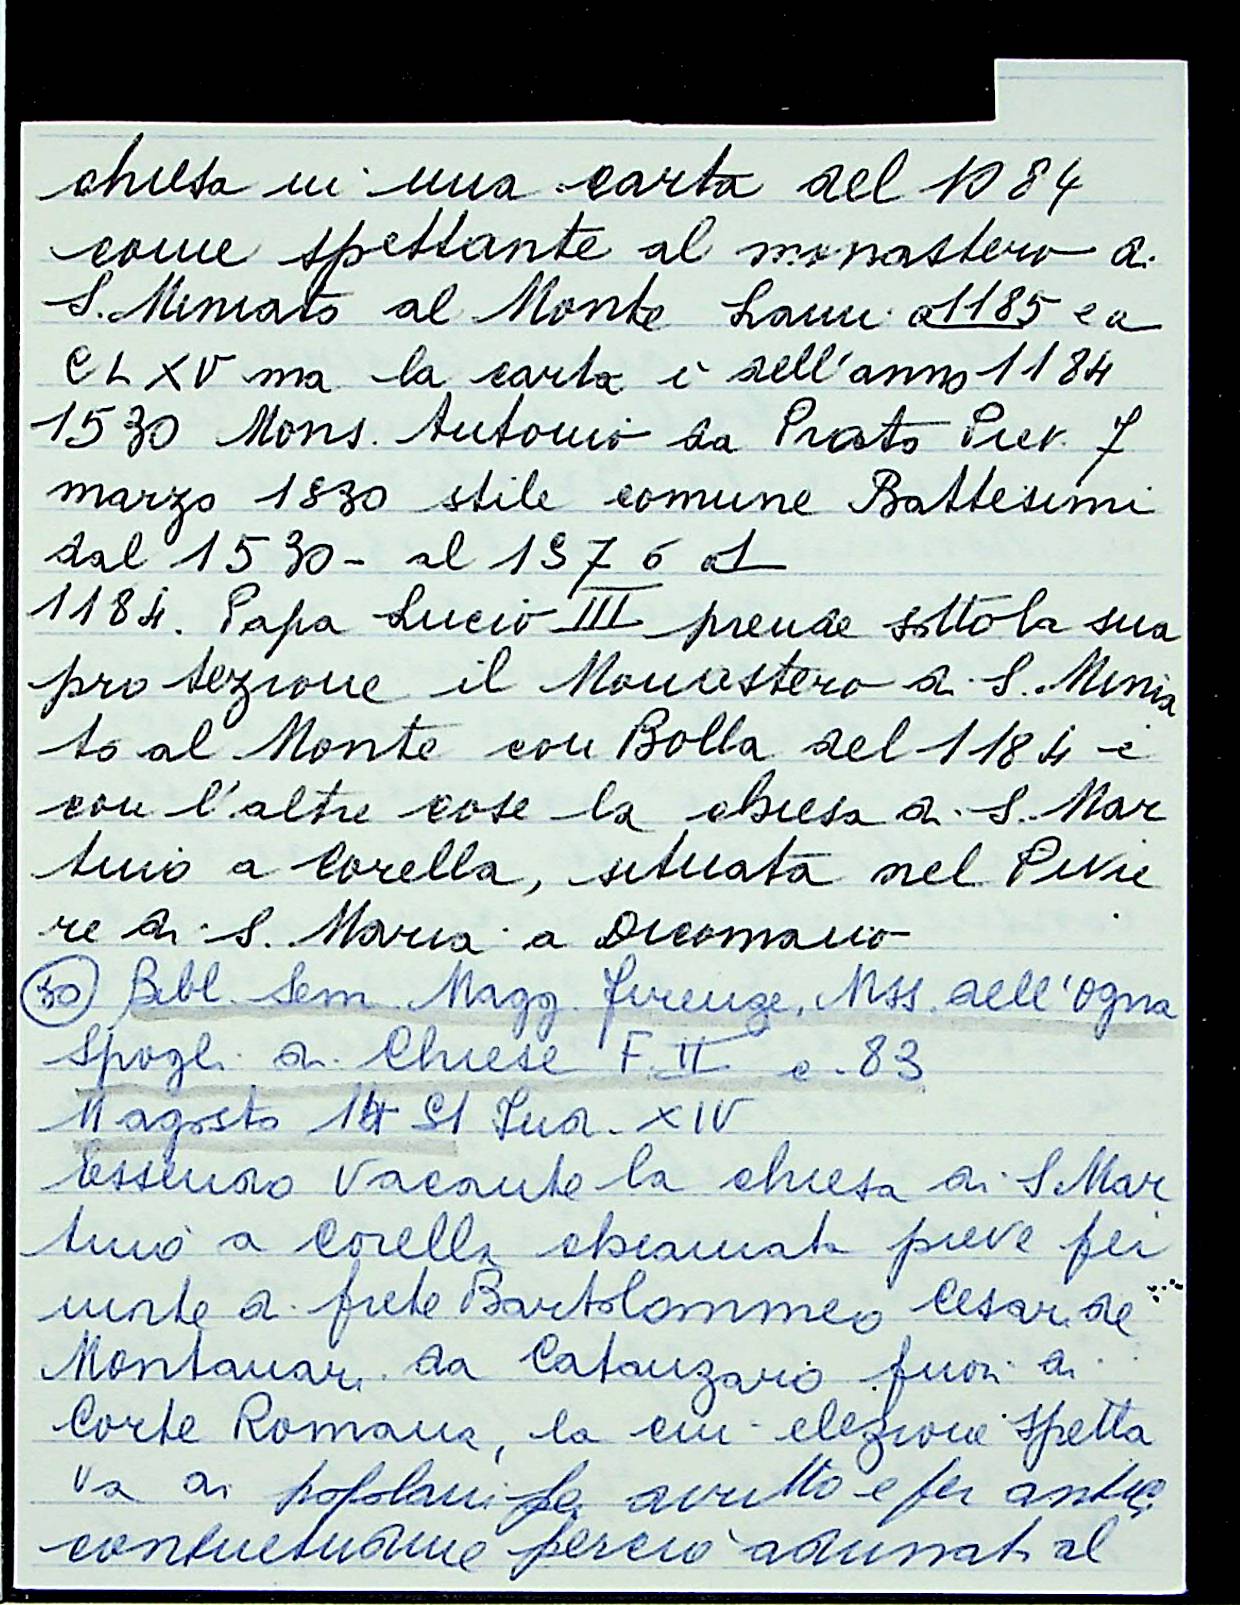 chiesa in una carta del 1084
come spettante al monastero di
S. Miniato al Monte Lami a 1185 e a
CLXV ma la carta è dell'anno 1184
1530 Mons. Antonio da Prato Piev. 7
marzo 1830 stile comune Battesimi
dal 1530 - al 1976
1184. Papa Lucio III prende sotto la sua
protezione il Monastero di S. Minia
to al Monte con Bolla del 1184 e
con l'altre cose la chiesa di S. Mar
tino a Corella, situata nel Pivie
re di S. Maria a Dicomano
30 Bibl. Sem. Magg. Firenze, Mss. dell'Ogna
Spogli di Chiese F. II c. 83
11 agosto Ind. XIV
Essendo vacante la chiesa di S. Mar
tino a Corella chiamata pieve per
morte di frete Bartolommeo Cesari de
Montanari da Catanzaro fuori di
Corte Romana, la cui elezione spetta
va ai popolani per diritto e per antic
consuetudine perciò adunati al